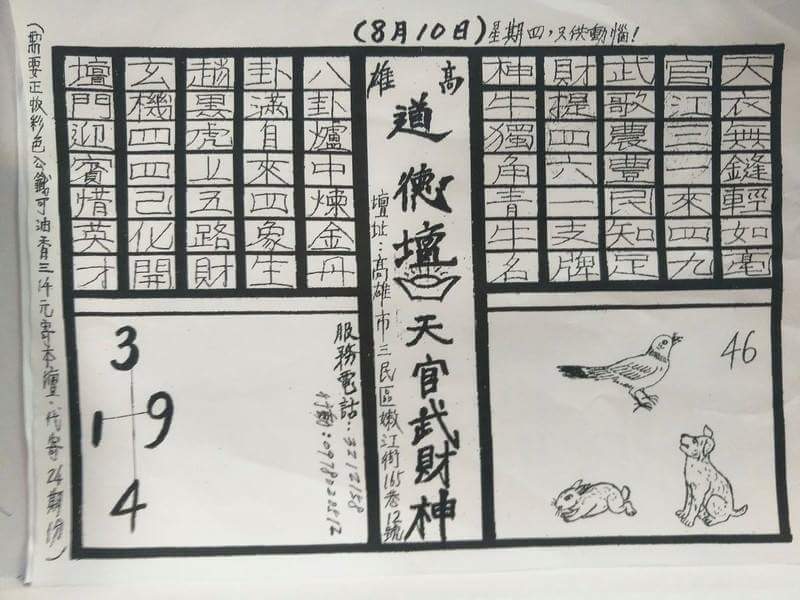 (8月10日)星期四,只供動惱!
天衣無縫輕如毫
官江三一來四九
武歌農豐民知足
財提四六一支牌
神牛獨角青牛名
高雄
道德壇
天官武財神
壇址:高雄市三民區嫩江街165巷12號
八卦爐中煉金丹
卦滿自來四象生
趙裏虎业五路財
玄機四四己化開
壇門迎賓惜英才
服務電話:3212158
行動:0978028512
3
1 9
4
46
(需要正妝彩色公籤可油香三仟元寄本壇.代寄24期份)